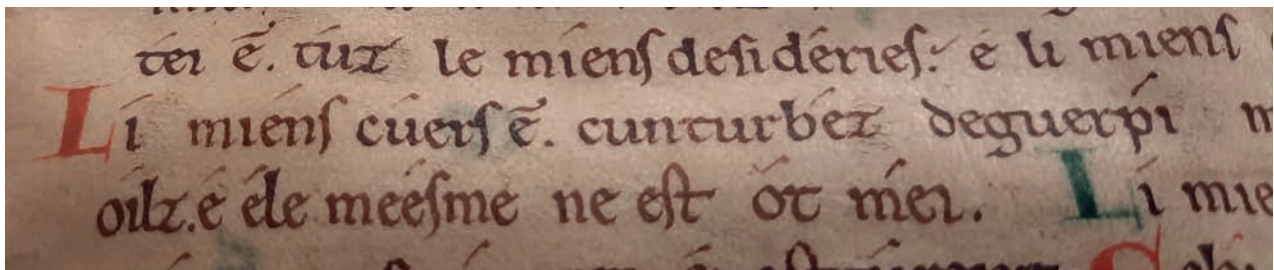 tei ē. tuz le miens desidéries: é li miens
Li miens cuers ē. cunturbez deguerpi m
oilz. é éle meésme ne est ót méi. Li mie